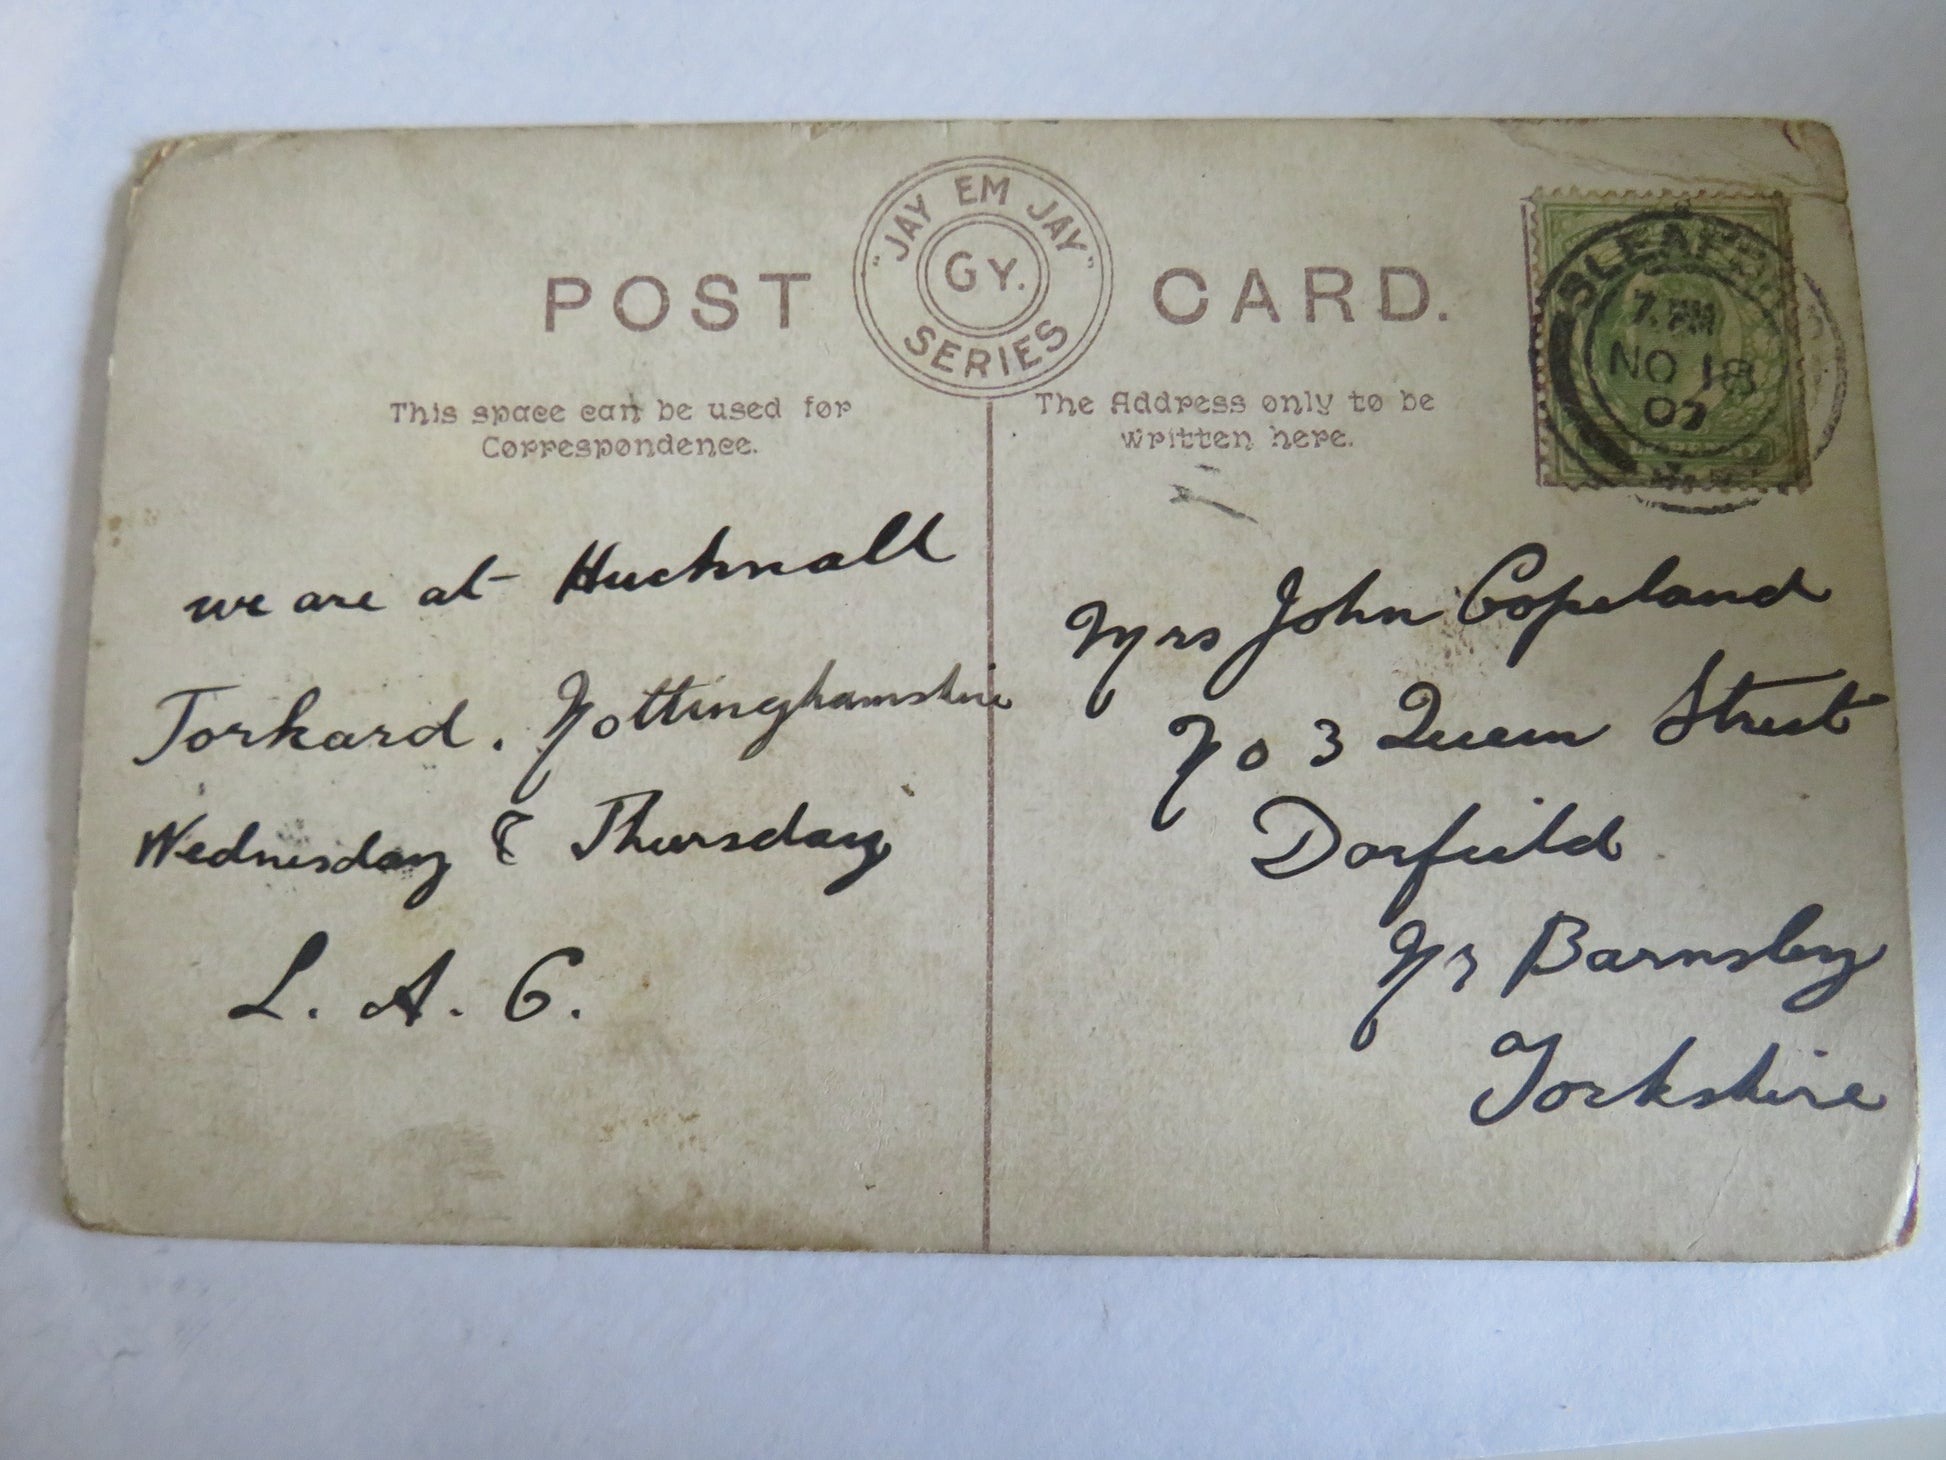 POST CARD.
"JAY EM JAY"
GY.
SERIES
This space can be used for
Correspondence.
The Address only to be
written here.
SLEAFORD
7. PM
NO 18
07
we are at Hucknall
Torkard. Nottinghamshire
Wednesday & Thursday
L. A. C.
Mrs John Copeland
No 3 Queen Street
Darfield
Nr Barnsley
Yorkshire